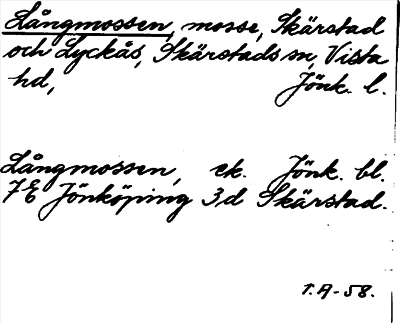 Långmossen, mosse, Skärstad
och Lyckås, Skärstads sn, Vista
hd, Jönk. l.
Långmossen, ek. Jönk. bl.
7E Jönköping 3d Skärstad.
T.A-58.